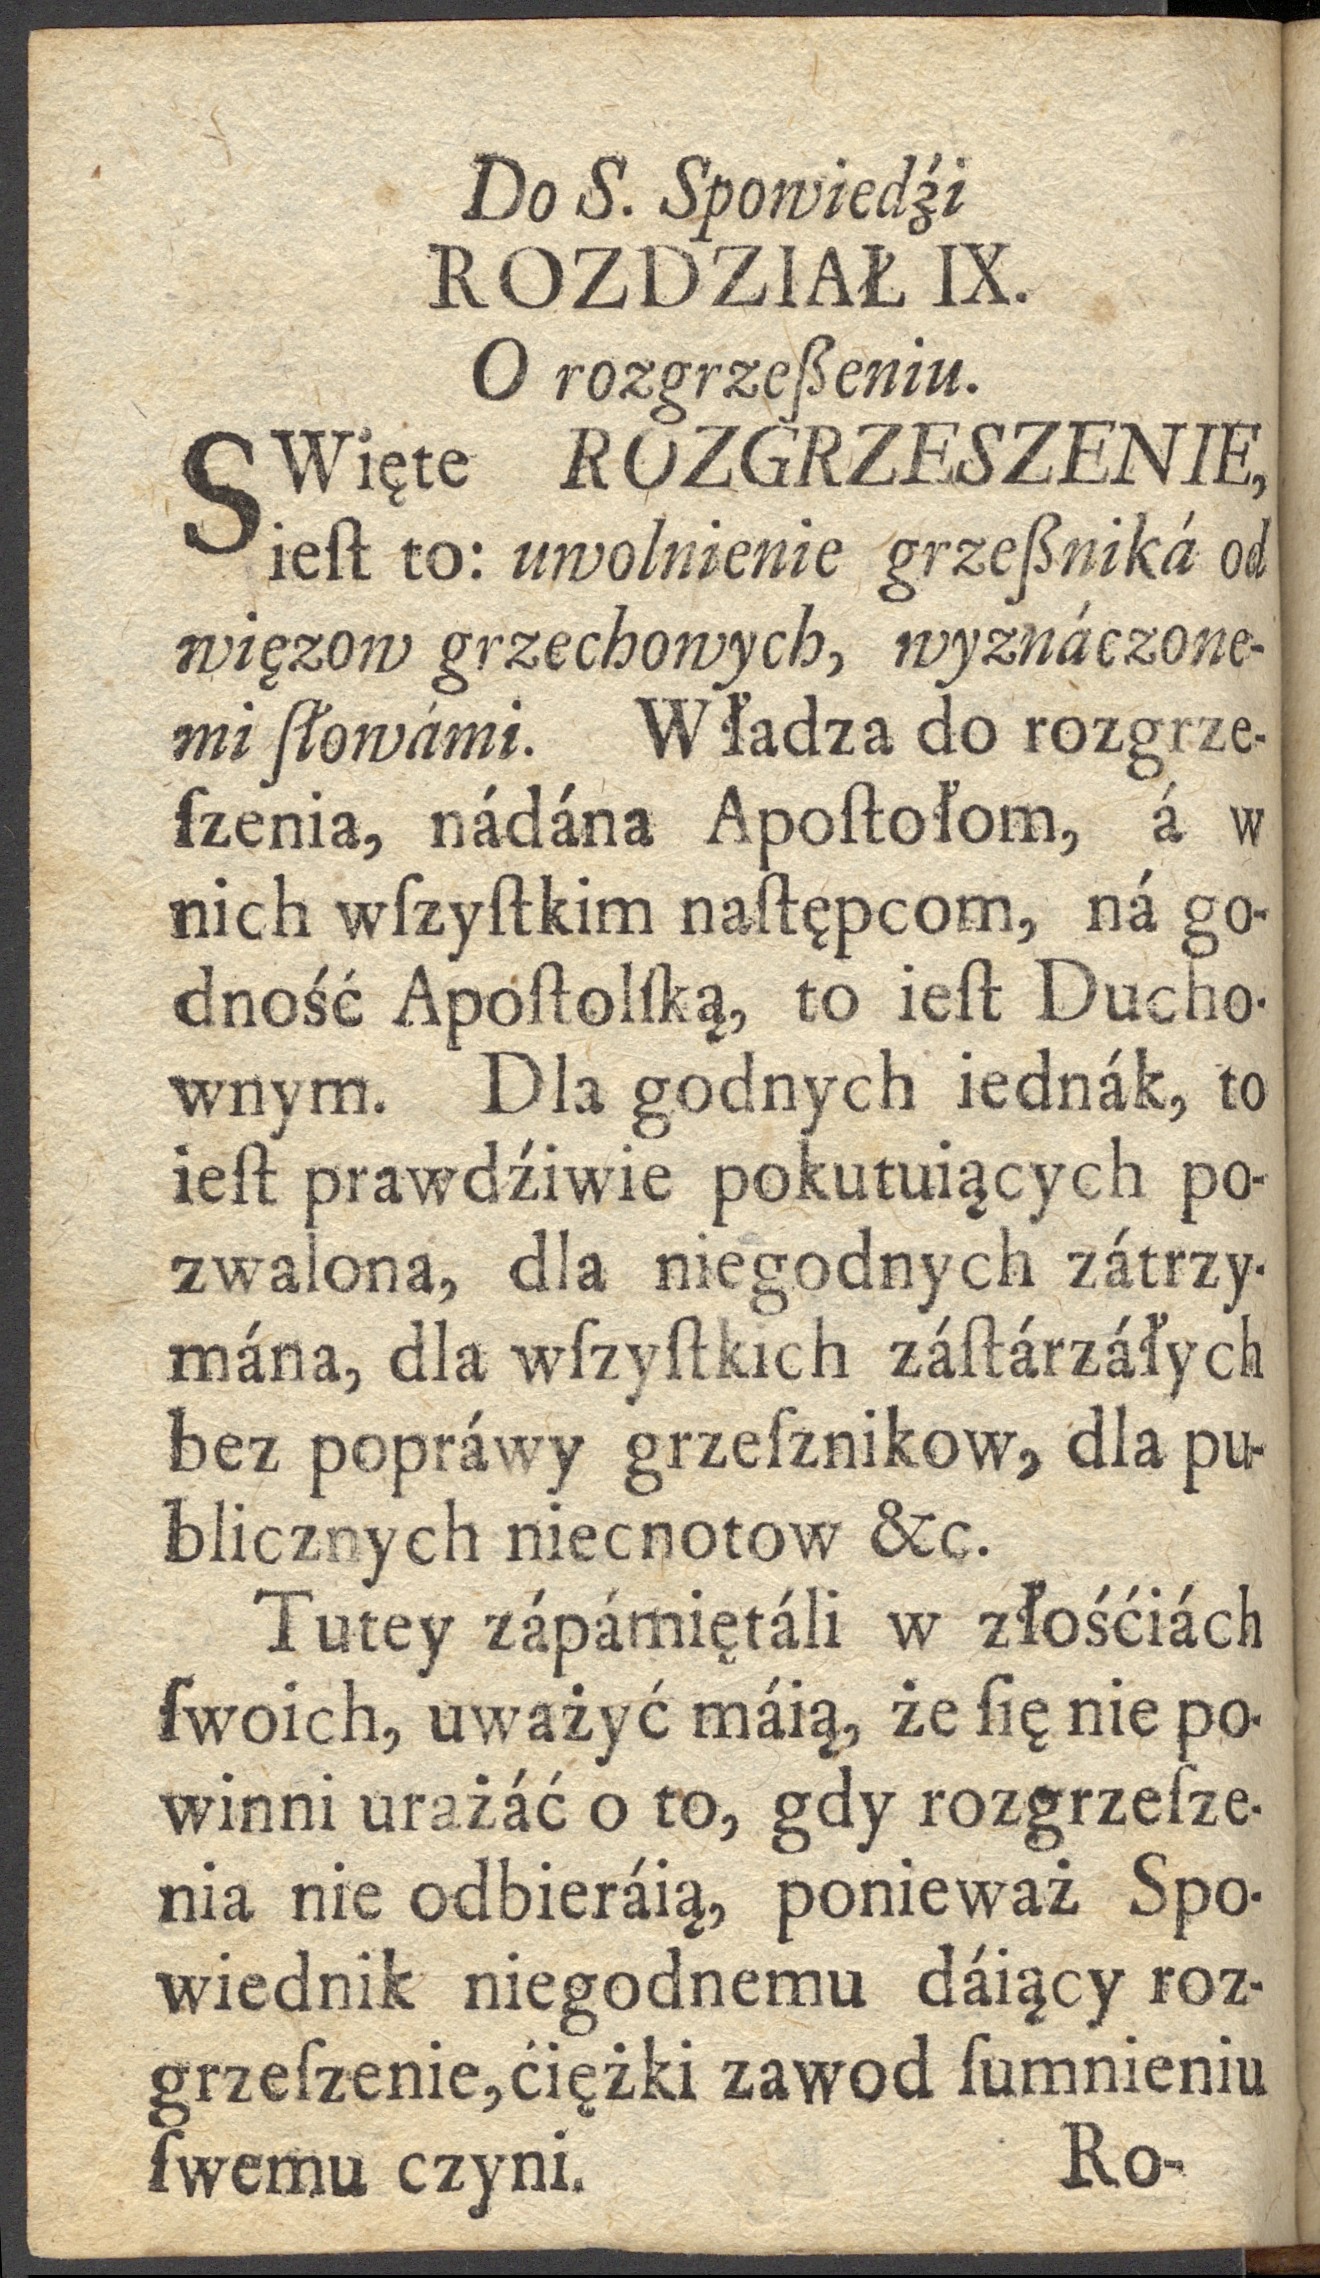 Do S. Spowiedźi
ROZDZIAŁ IX.
O rozgrzeßeniu.
SWięte ROZGRZESZENIE,
ieſt to: uwolnienie grzeßniká od
więzow grzechowych, wyznáczone-
mi ſłowámi. Władza do rozgrze-
ſzenia, nádána Apoſtołom, á w
nich wſzyſtkim naſtępcom, ná go-
dność Apoſtolſką, to ieſt Ducho-
wnym. Dla godnych iednák, to
ieſt prawdźiwie pokutuiących po-
zwalona, dla niegodnych zátrzy-
mána, dla wſzyſtkich záſtárzáłych
bez popráwy grzeſznikow, dla pu-
blicznych niecnotow &c.
Tutey zápámiętáli w złośćiách
ſwoich, uważyć máią, że ſię nie po-
winni urażáć o to, gdy rozgrzeſze-
nia nie odbieráią, ponieważ Spo-
wiednik niegodnemu dáiący roz-
grzeſzenie, ćiężki zawod ſumnieniu
ſwemu czyni. Ro-